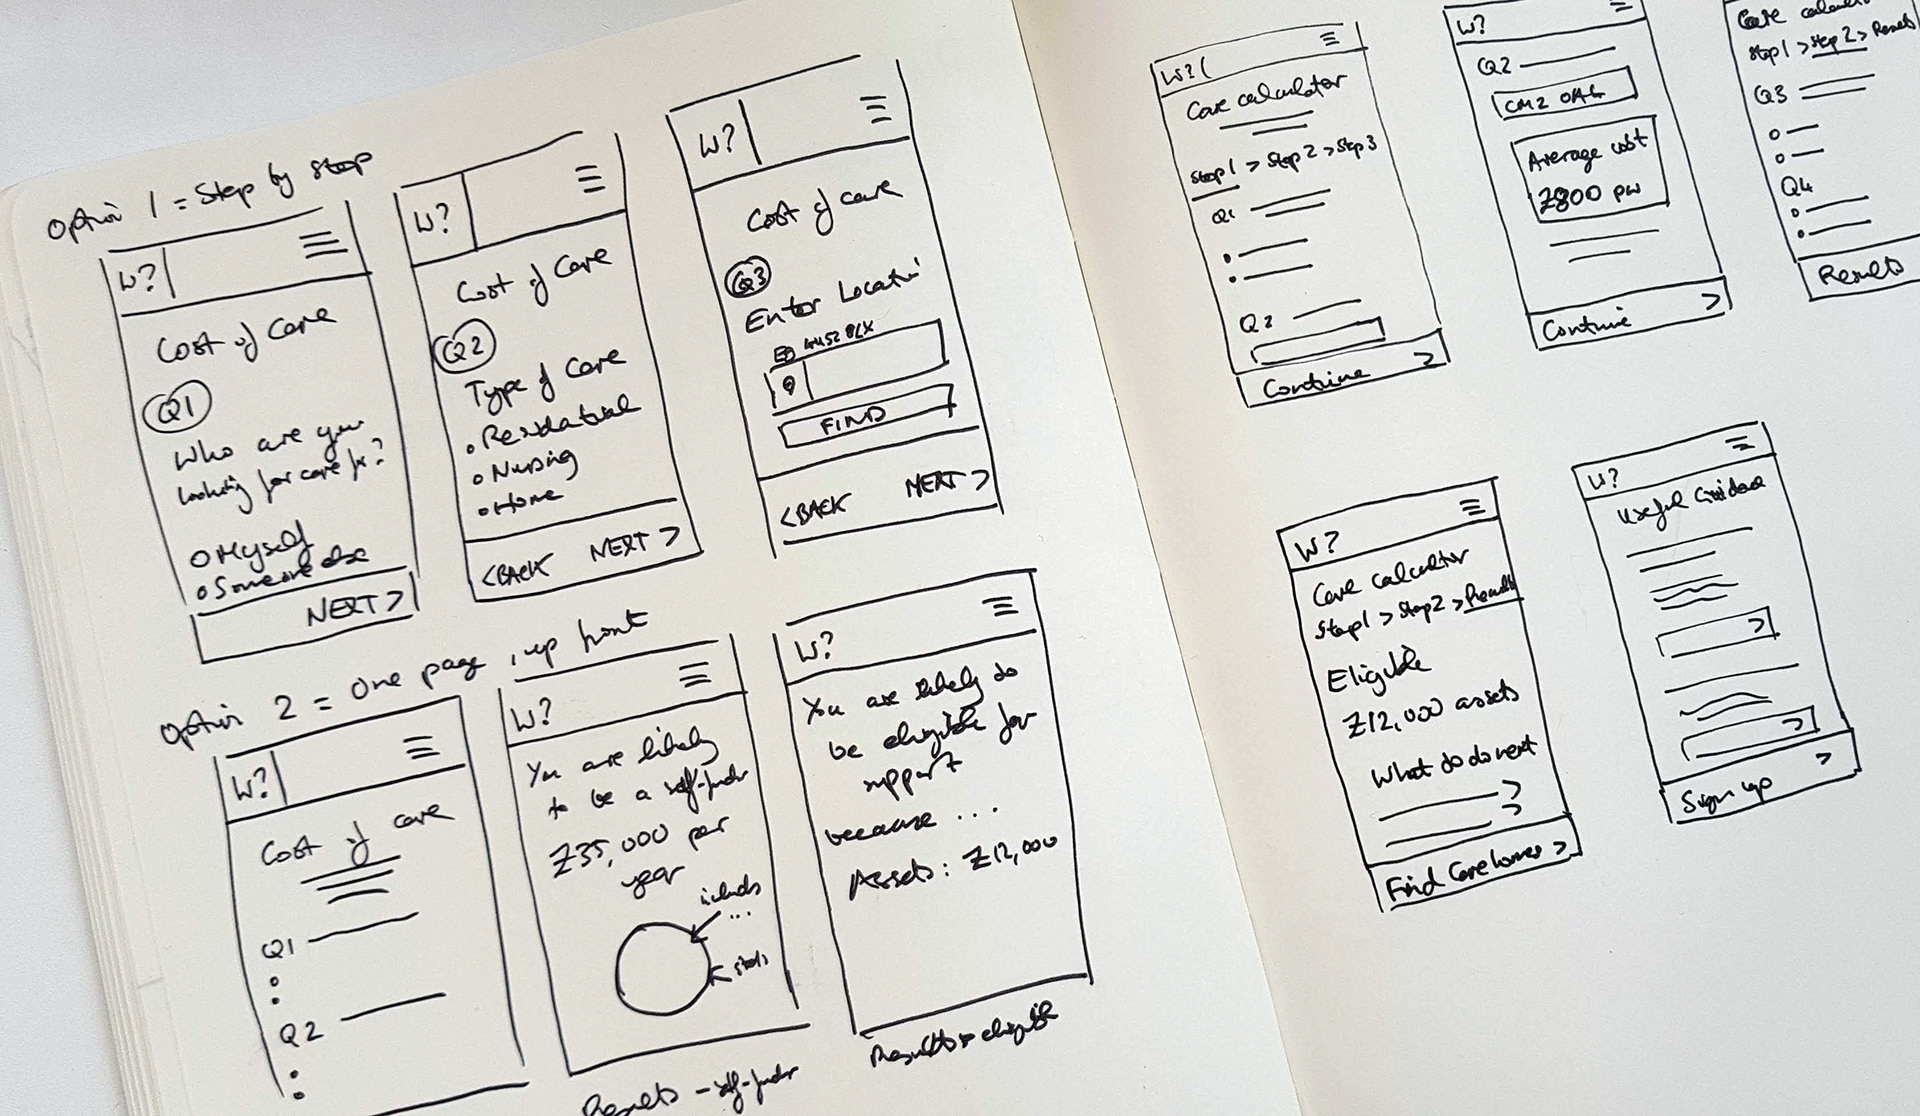 Option 1 = Step by step
W?
Cost of care
Q1
Who are you
looking for care for?
Myself
Someone else
NEXT >
W?
Cost of care
Q2
Type of care
Residential
Nursing
Home
<BACK NEXT >
W?
Cost of care
Q3
Enter Location
FIND
<BACK NEXT >
Option 2 = One page, up front
W?
Cost of care
Q1
Q2
W?
You are likely
to be a self-funder
£35,000 per
year
includes
...
Results - self-funder
W?
You are likely to
be eligible for
support
because ...
Assets: £12,000
Results > eligible
W?
Care calculator
Step 1 > Step 2 > Step 3
Q1
Q2
Continue >
W?
Q2
CM2 0A4
Average cost
£800 pw
Continue >
Care calculat
Step 1 > Step 2 > Results
Q3
Q4
Results
W?
Care calculator
Step 1 > Step 2 > Results
Eligible
£12,000 assets
What to do next
Find Care homes >
W?
Useful Guidance
Sign up >